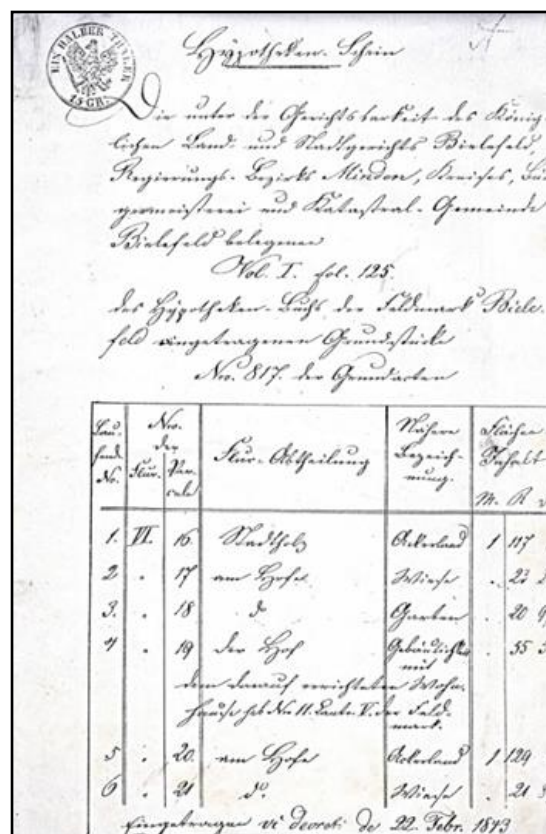 EIN HALBER THALER
15 GR.
Hypotheken-Schein
Die unter der Gerichtsbarkeit des König-
lichen Land- und Stadtgerichts Bielefeld,
Regierungs-Bezirks Minden, Kreises, Bür
germeisterei und Katastral-Gemeinde
Bielefeld belegenen
Vol. I. fol. 125.
des Hypotheken-Buchs der Feldmark Biele-
feld eingetragenen Grundstücke
Nro. 817. der Grundacten
Lau- fende No. Nro. der Flur. Par- cele Flur-Abtheilung Nähere Bezeich- nung. Flächen Inhalt M. R
1. VI. 16 Stadtholz Ackerland 1 117
2 . 17 am Hofe Wiese . 23
3. . 18 d Garten . 20
4 . 19 der Hof Gebäulichk. mit . 55
dem darauf errichteten Wohn-
hause sub No 11. Litt. V. der Feld-
mark.
5 . 20. am Hofe Ackerland 1 129
6 . 21 d. Wiese . 21
Eingetragen vi decreti de 22. Febr. 1843